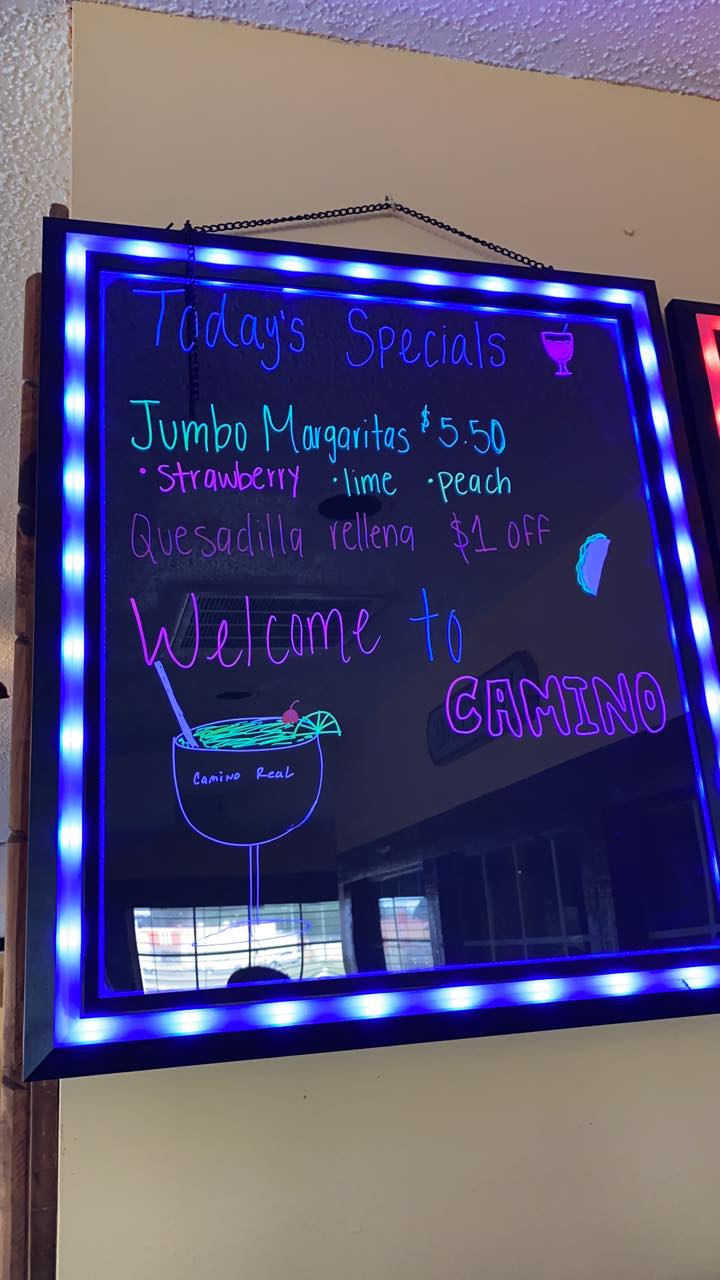 Today's Specials
Jumbo Margaritas $5.50
• Strawberry • lime • peach
Quesadilla rellena $1 OFF
Welcome to
CAMINO
Camino Real